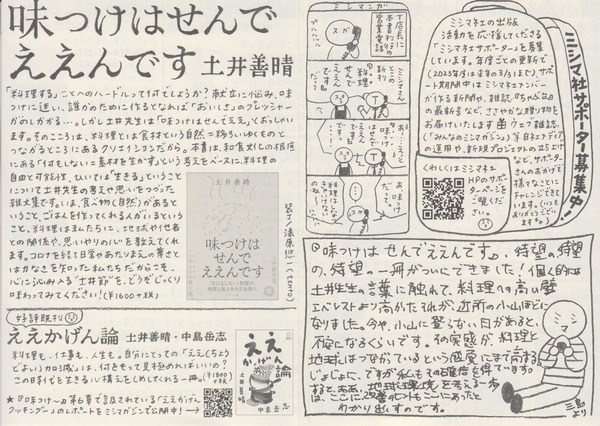 味つけはせんで
ええんです 土井善晴
「料理する」ことへのハードルって何でしょうか？献立に悩み、味
つけに迷い、誰かのために作るとなれば「おいしさ」のプレッシャー
がのしかかる…。しかし土井先生は「味つけはせんでええ」とおっしゃい
ます。そのこころは、料理とは食材という自然＝移ろいゆくものと
つながるところにあるクリエイションだから。本書は、和食文化の根底
にある「何もしないこと=素材を生かす」という考えをベースに、料理の
自由と可能性、ひいては「生きる」ということ
について土井先生の考えや思いをつづった
雑文集です。いま、食べ物(自然)があると
いうこと。ごはんを作ってくれる人がいるという
こと。料理は私たちに、地球や他者
との関係や、思いやりの心を教えてくれ
ます。コロナを経て日常やあたりまえの尊さと
はかなさを知った私たちだからこそ、
心に沁みる"土井節"を、どうぞじっくり
味わってみてください！(￥1600+税)
土井善晴
味つけは
せんで
ええんです
好評既刊
ええかげん論 土井善晴・中島岳志
料理も、仕事も、人生も。自分にとっての「ええ(ちょう
どよい)加減」は、何をもって見極めればいいの？
この時代を生きる心構えをしめてくれる一冊。(￥1600+税)
ええかげん論
土井善晴
中島岳志
★『味つけ〜』の第6章で言及されている「ええかげん
クッキング」のレポートをミシマガジンで公開中！→
ミシマンガ
T店長に
本書刊行の
営業電話
スガ
ミシマさん
の
新刊
味つけ
せんで
ええん
です
だって
ミシマ社サポーター募集中！
ミシマ社の出版
活動を応援してくださる
「ミシマ社サポーター」を募集
しています。年度ごとの更新で
(2023年度は本年の3/31まで)、サポー
ト期間中はミシマ社メンバー
が作る新聞や、雑誌『ちゃぶ台』
の最新号など、ささやかな贈り物を
お届けいたします。ウェブ雑誌
(「みんなのミシマガジン」)等自社メディア
の運用や、新版プロジェクトの立ち上げ
など、サポーター
さんのおかげで
様々なことに
チャレンジできて
います。(いつも
ありがとうござい
ます)
くわしくはミシマ社
HPのサポー
ターページを
ご覧くだ
さい。
『味つけはせんでええんです』、待望の、待望
の、待望の一冊がついにできました！個人的には
土井先生の言葉に触れて、料理への高い壁
エベレストより高かったそれが、近所の小山ほどに
なりました。今や、小山に登らない日があると、
不安になるくらいです。その実感が、料理と
地球はつながっているという感覚にまで高まる。
じょじょに、ですが私もその確信を得ています。
すると、ああ、地球環境を考える一歩
は、ここに、改善のヒントもここにあったと
わかり出すのです。
三島
より